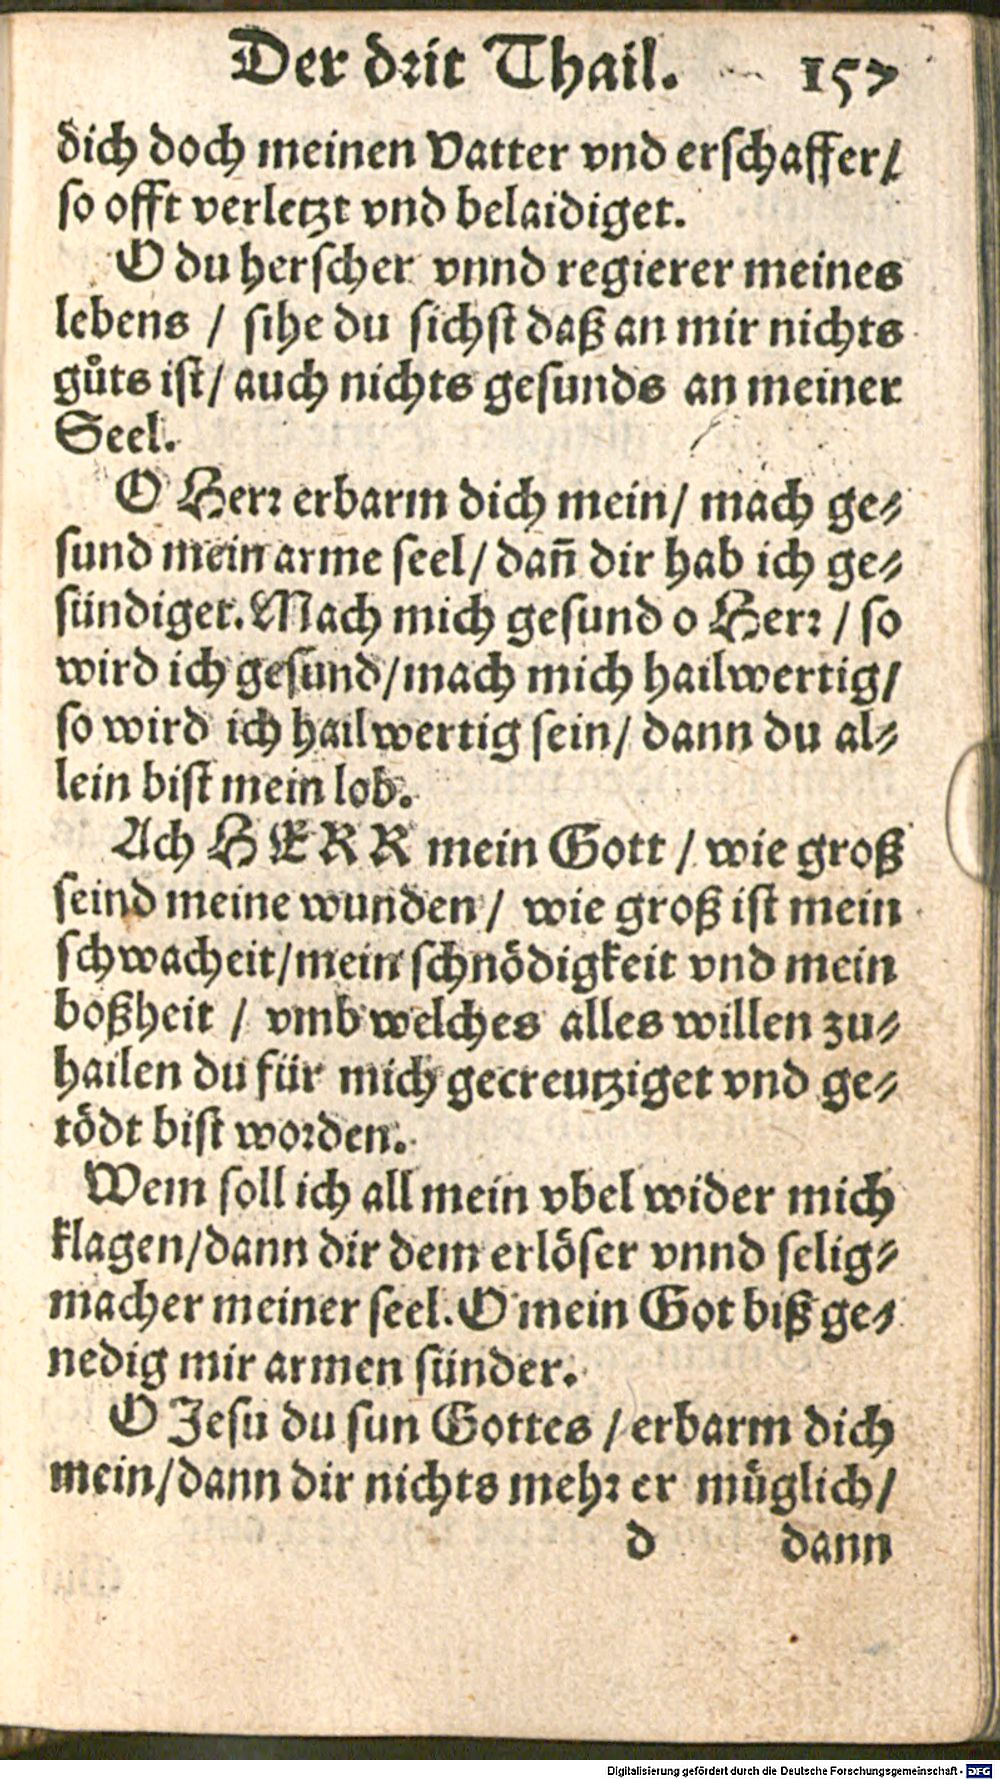 Der drit Thail. 157
dich doch meinen Vatter vnd erschaffer/
so offt verletzt vnd belaidiget.
O du herscher vnnd regierer meines
lebens / sihe du sichst daß an mir nichts
gůts ist/ auch nichts gesunds an meiner
Seel.
O Herr erbarm dich mein/ mach ge-
sund mein arme seel/ dañ dir hab ich ge-
sündiget. Mach mich gesund o Herr / so
wird ich gesund/mach mich hailwertig/
so wird ich hailwertig sein/ dann du al-
lein bist mein lob.
Ach HERR mein Gott / wie groß
seind meine wunden/ wie groß ist mein
schwacheit/mein schnödigkeit vnd mein
boßheit / vmb welches alles willen zu-
hailen du für mich gecreutziget vnd ge-
tödt bist worden.
Wem soll ich all mein vbel wider mich
klagen/dann dir dem erlöser vnnd selig-
macher meiner seel. O mein Got biß ge-
nedig mir armen sünder.
O Jesu du sun Gottes / erbarm dich
mein/dann dir nichts mehr er müglich/
d dann
Digitalisierung gefördert durch die Deutsche Forschungsgemeinschaft - DFG